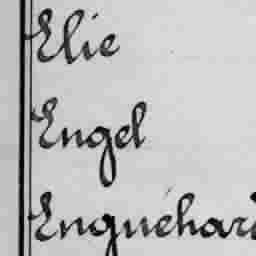 Elie
Engel
Enguéhard